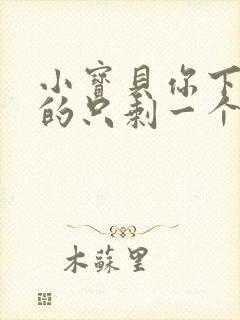 小寶貝你下
的只剩一个
木蘇里